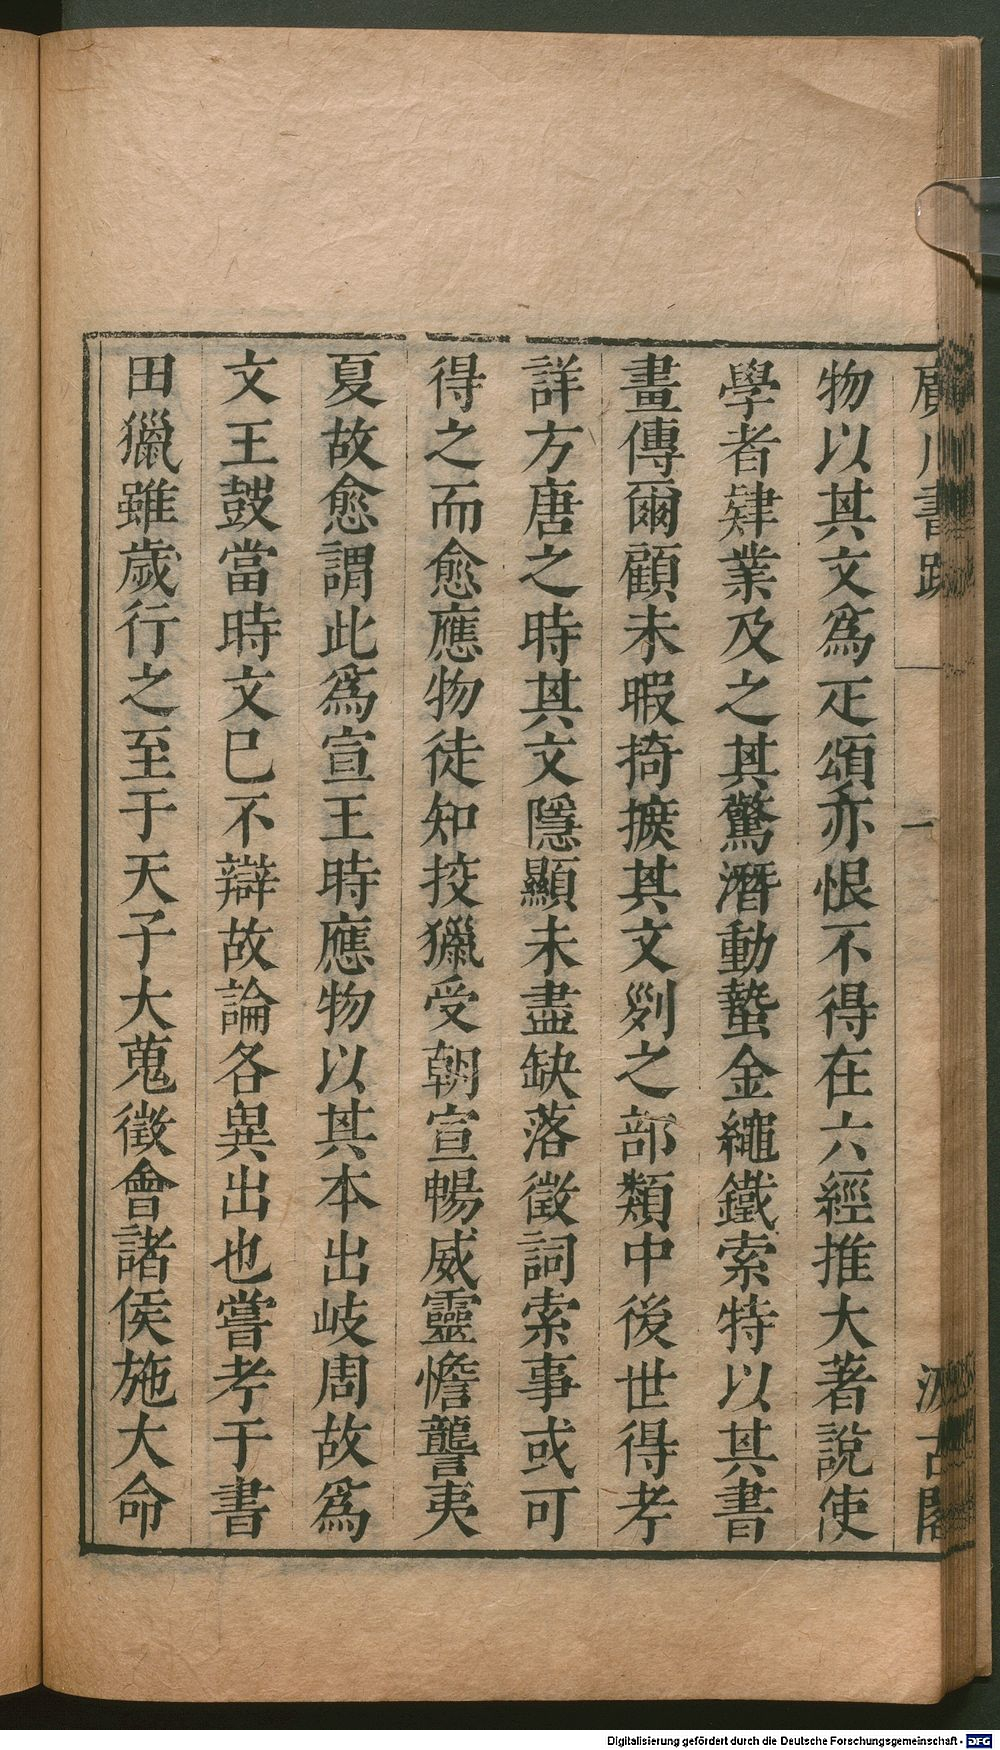 廣川書跋 一 汲古閣
物以其文爲疋頌亦恨不得在六經推大著說使
學者肄業及之其驚潛動蟄金繩鐵索特以其書
畫傳爾顧未暇掎摭其文𠛴之部類中後世得考
詳方唐之時其文隱顯未盡缺落徵詞索事或可
得之而愈應物徒知挍獵受朝宣暢威靈憺讋夷
夏故愈謂此爲宣王時應物以其本出岐周故爲
文王鼓當時文已不辯故論各異出也嘗考于書
田獵雖歲行之至于天子大蒐徵會諸侯施大命
Digitalisierung gefördert durch die Deutsche Forschungsgemeinschaft - DFG